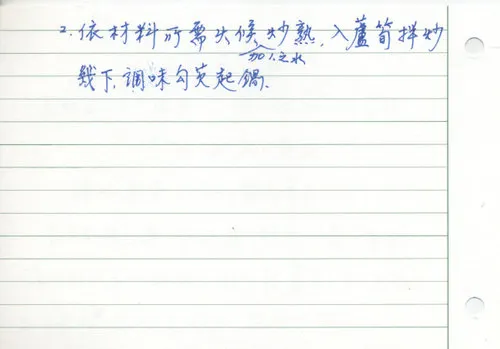 2. 依材料所需火候炒熟, 入蘆筍拌炒
加入之水
幾下, 調味勾芡起鍋.